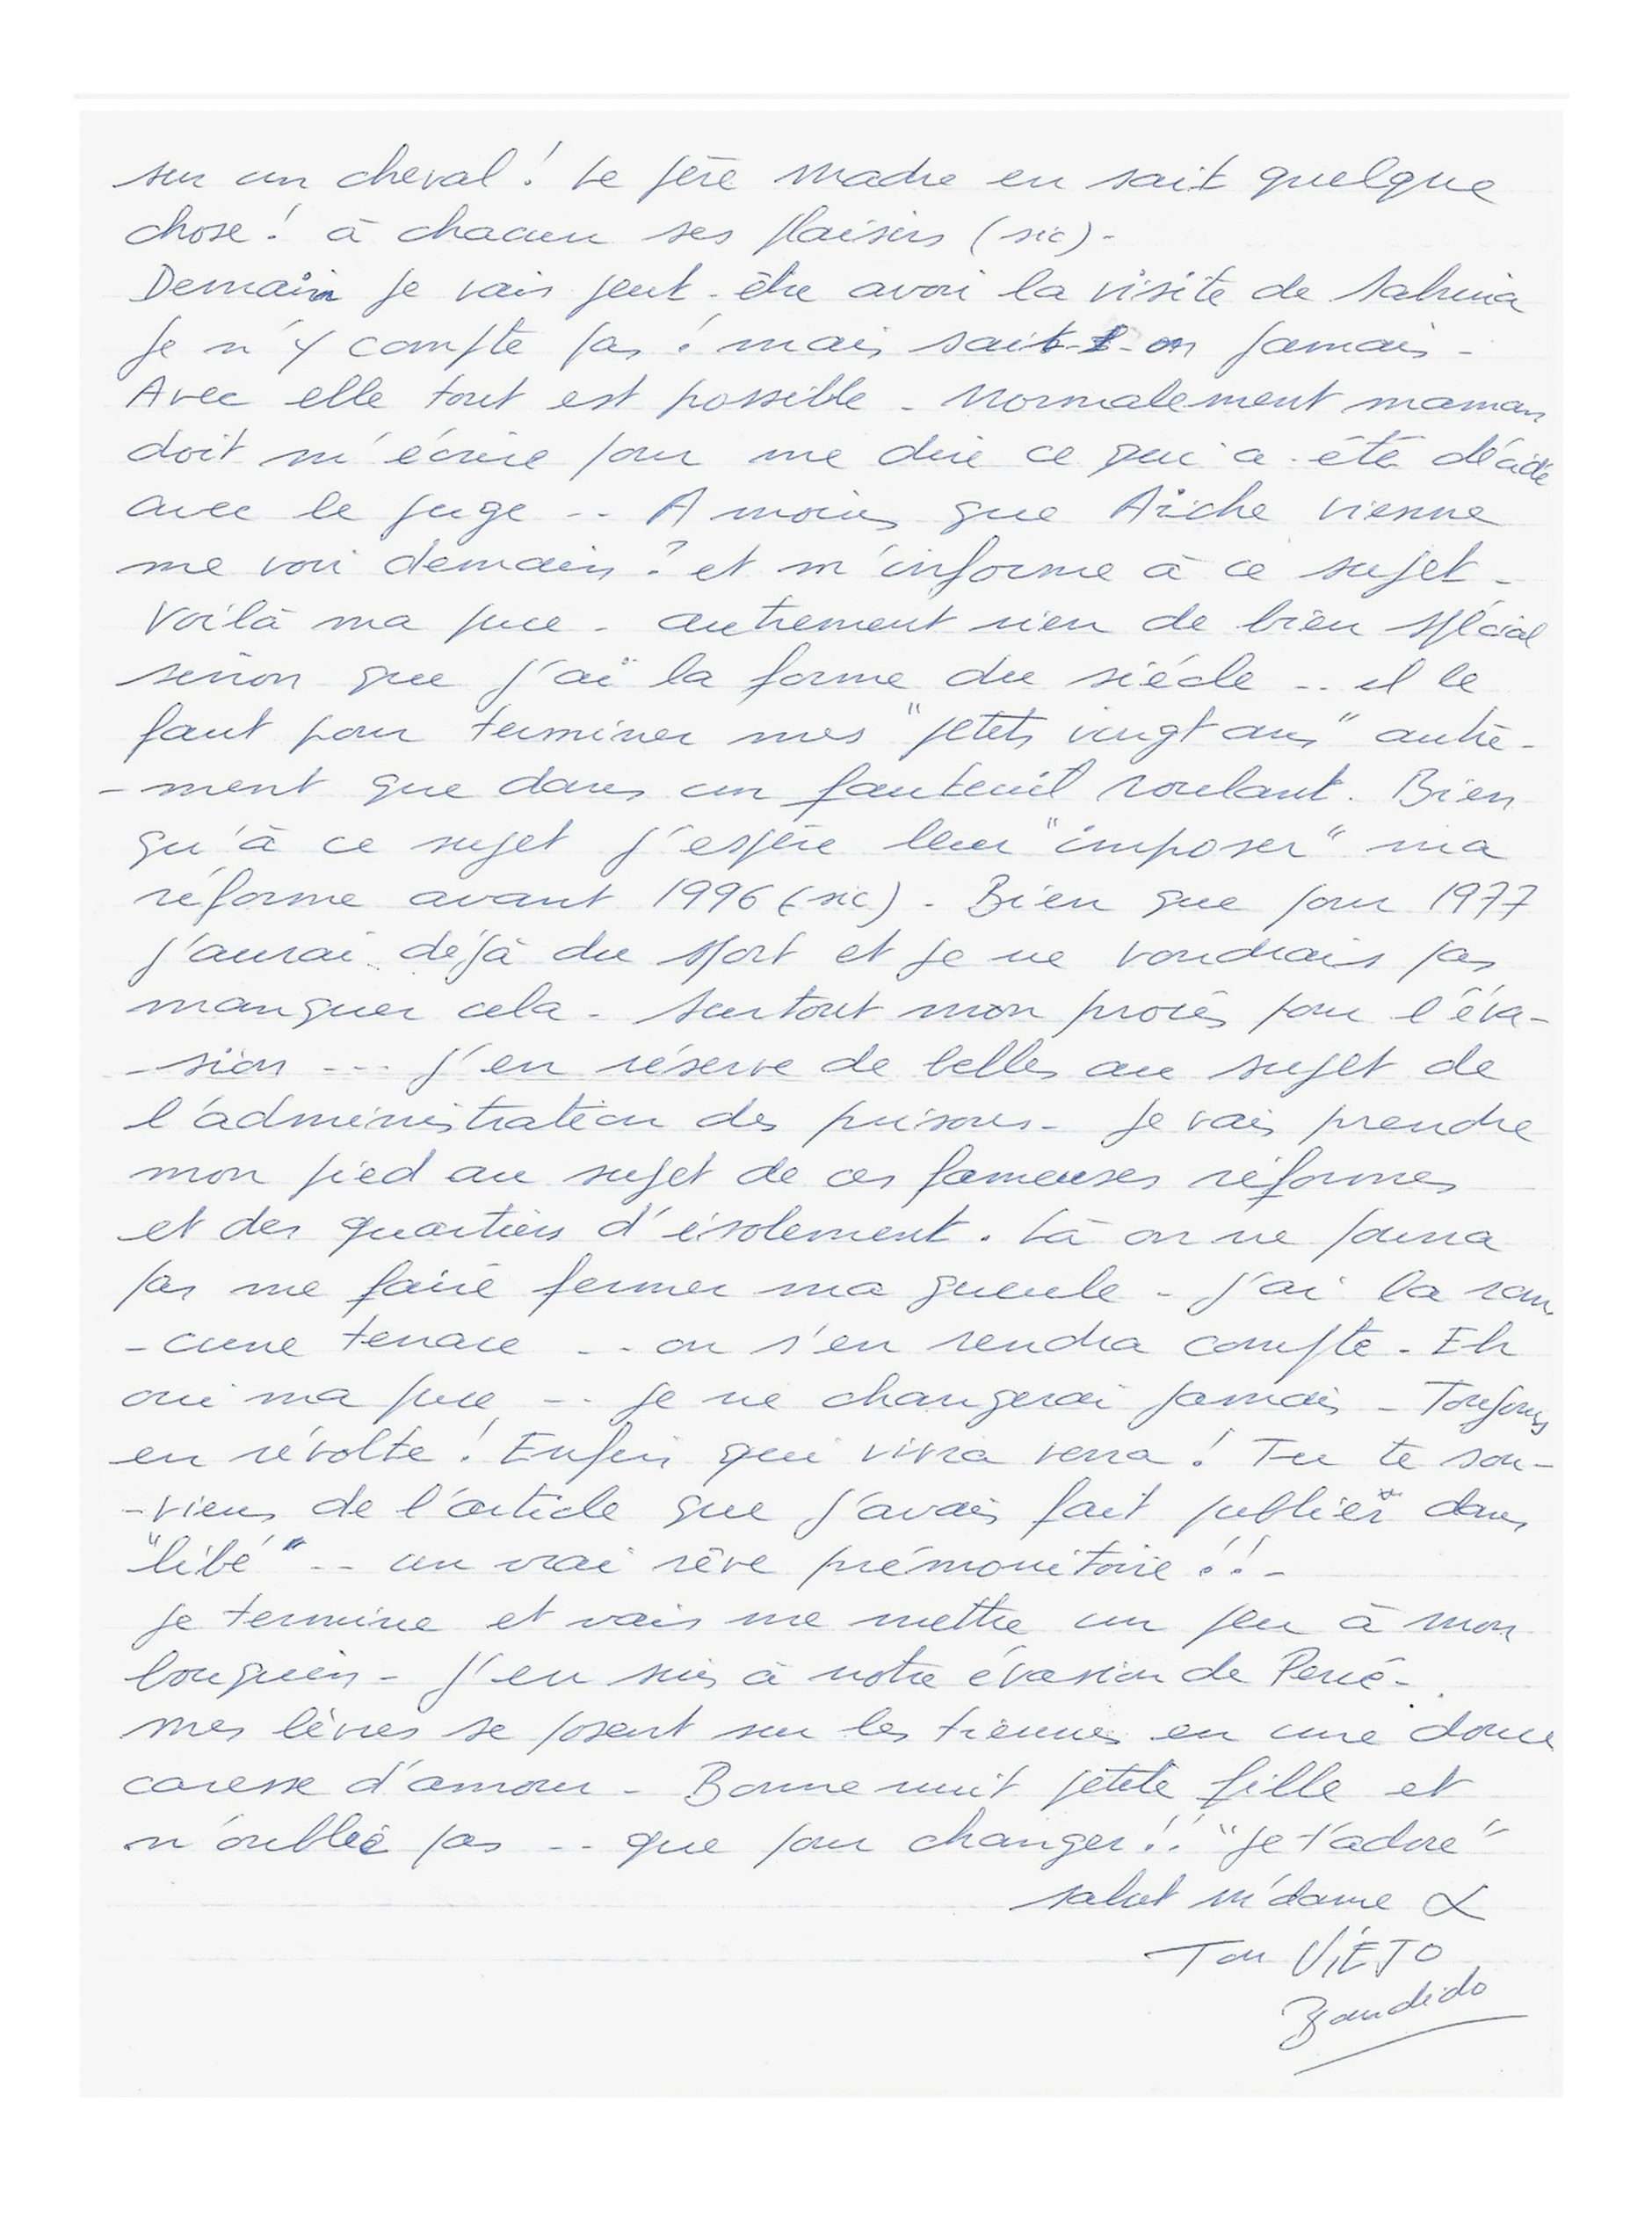 sur un cheval ! Le père Madre en sait quelque
chose ! à chacun ses plaisirs (sic) -
Demain je vais peut-être avoir la visite de Sabrina
je n'y compte pas ! mais sait-on jamais -
Avec elle tout est possible - Normalement maman
doit m'écrire pour me dire ce qui a été décidé
avec le juge -- A moins que Aïche vienne
me voir demain ? et m'informe à ce sujet -
Voilà ma puce - autrement rien de bien spécial
sinon que j'ai la forme du siècle -- il le
faut pour terminer mes "petits vingt ans" autre-
-ment que dans un fauteuil roulant. Bien
qu'à ce sujet j'espère leur "imposer" ma
réforme avant 1996 (sic) - Bien que pour 1977
j'aurai déjà du sport et je ne voudrais pas
manquer cela - Surtout mon procès pour l'éva-
-sion --- j'en réserve de belles au sujet de
l'administration des prisons - je vais prendre
mon pied au sujet de ces fameuses réformes
et des quartiers d'isolement. Là on ne pourra
pas me faire fermer ma gueule - j'ai la ran
-cune tenace -- on s'en rendra compte - Eh
oui ma puce -- je ne changerai jamais - Toujours
en révolte ! Enfin qui vivra verra ! Tu te sou-
-viens de l'article que j'avais fait publier dans
"libé" -- un vrai rêve prémonitoire !! -
je termine et vais me mettre un peu à mon
bouquin - j'en suis à notre évasion de Percé -
mes lèvres se posent sur les tiennes en une douce
caresse d'amour - Bonne nuit petite fille et
n'oublie pas -- que pour changer !! "je t'adore"
salut m'dame
Ton ViEJO
Bandido